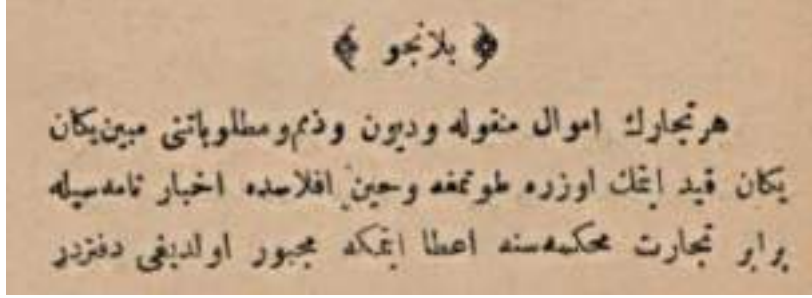 ﴿ بلانجو ﴾
هر تجارك اموال منقوله و ديون و ذمم و مطلوباتنى مبين يكان
يكان قيد ايتمك اوزره طوتمغه و حين افلاسده اخبار نامه سيله
برابر تجارت محكمه سنه اعطا ايتمكه مجبور اولديغى دفتردر